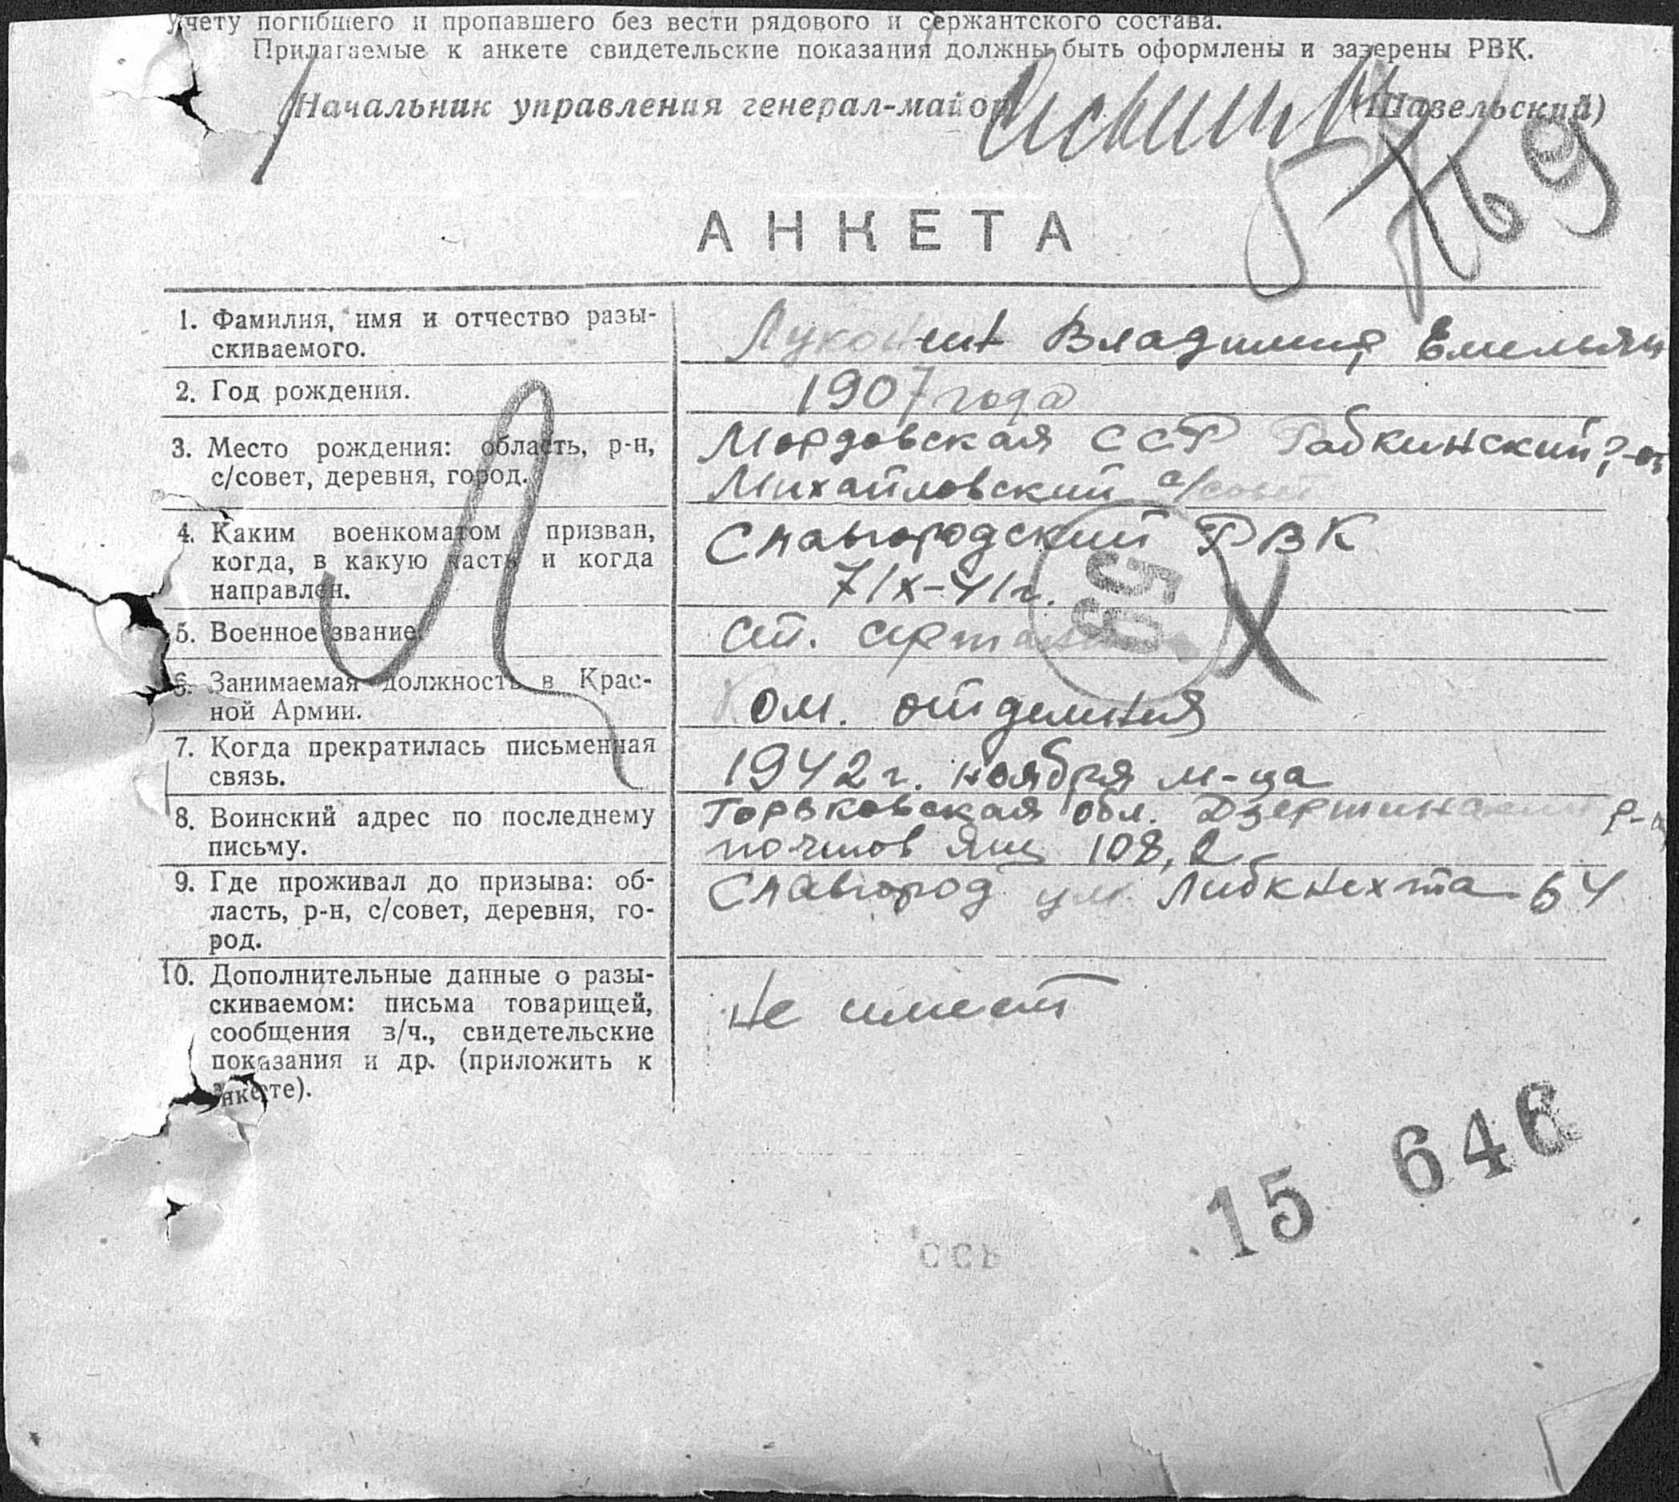 учету погибшего и пропавшего без вести рядового и сержантского состава.
Прилагаемые к анкете свидетельские показания должны быть оформлены и заверены РВК.
Начальник управления генерал-майор (Шавельский)
5769
АНКЕТА
1. Фамилия, имя и отчество разы-
скиваемого.
Владимир Емельян
2. Год рождения.
1907 года
3. Место рождения: область, р-н,
с/совет, деревня, город.
Мордовская ССР Рабкинский р-он
Михайловский с/совет
4. Каким военкоматом призван,
когда, в какую часть и когда
направлен.
Славгородский РВК
7/X-41г.
5. Военное звание.
ст. сержант
59
6. Занимаемая должность в Крас-
ной Армии.
Ком. отделения
7. Когда прекратилась письменная
связь.
1942 г. ноября м-ца
8. Воинский адрес по последнему
письму.
Горьковская обл. Дзержинский р-н
почтов ящ 108,
9. Где проживал до призыва: об-
ласть, р-н, с/совет, деревня, го-
род.
Славгород ул. Либкнехта 64
10. Дополнительные данные о разы-
скиваемом: письма товарищей,
сообщения з/ч., свидетельские
показания и др. (приложить к
анкете).
Не имеет
15 646